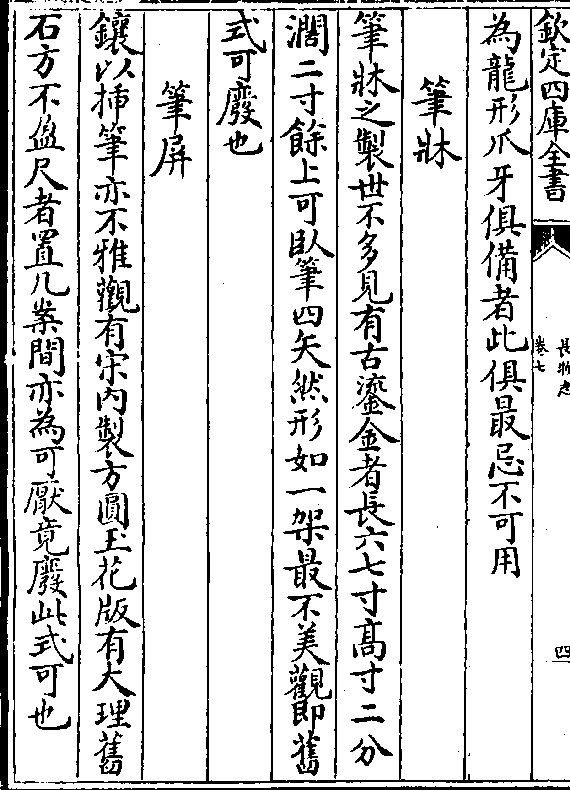 欽定四庫全書
長物志
卷七
四
為龍形爪牙俱備者此俱最忌不可用
筆牀
筆牀之製世不多見有古鎏金者長六七寸高寸二分
濶二寸餘上可臥筆四矢然形如一架最不美觀即舊
式可廢也
筆屏
鑲以揷筆亦不雅觀有宋內製方圓玉花版有大理舊
石方不盈尺者置几案間亦為可厭竟廢此式可也